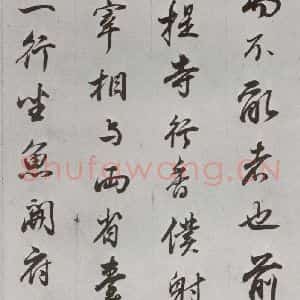 而不敢者也前
提寺行香僕射
宰相与两省臺
一行坐魚開府
Shufawang.CN